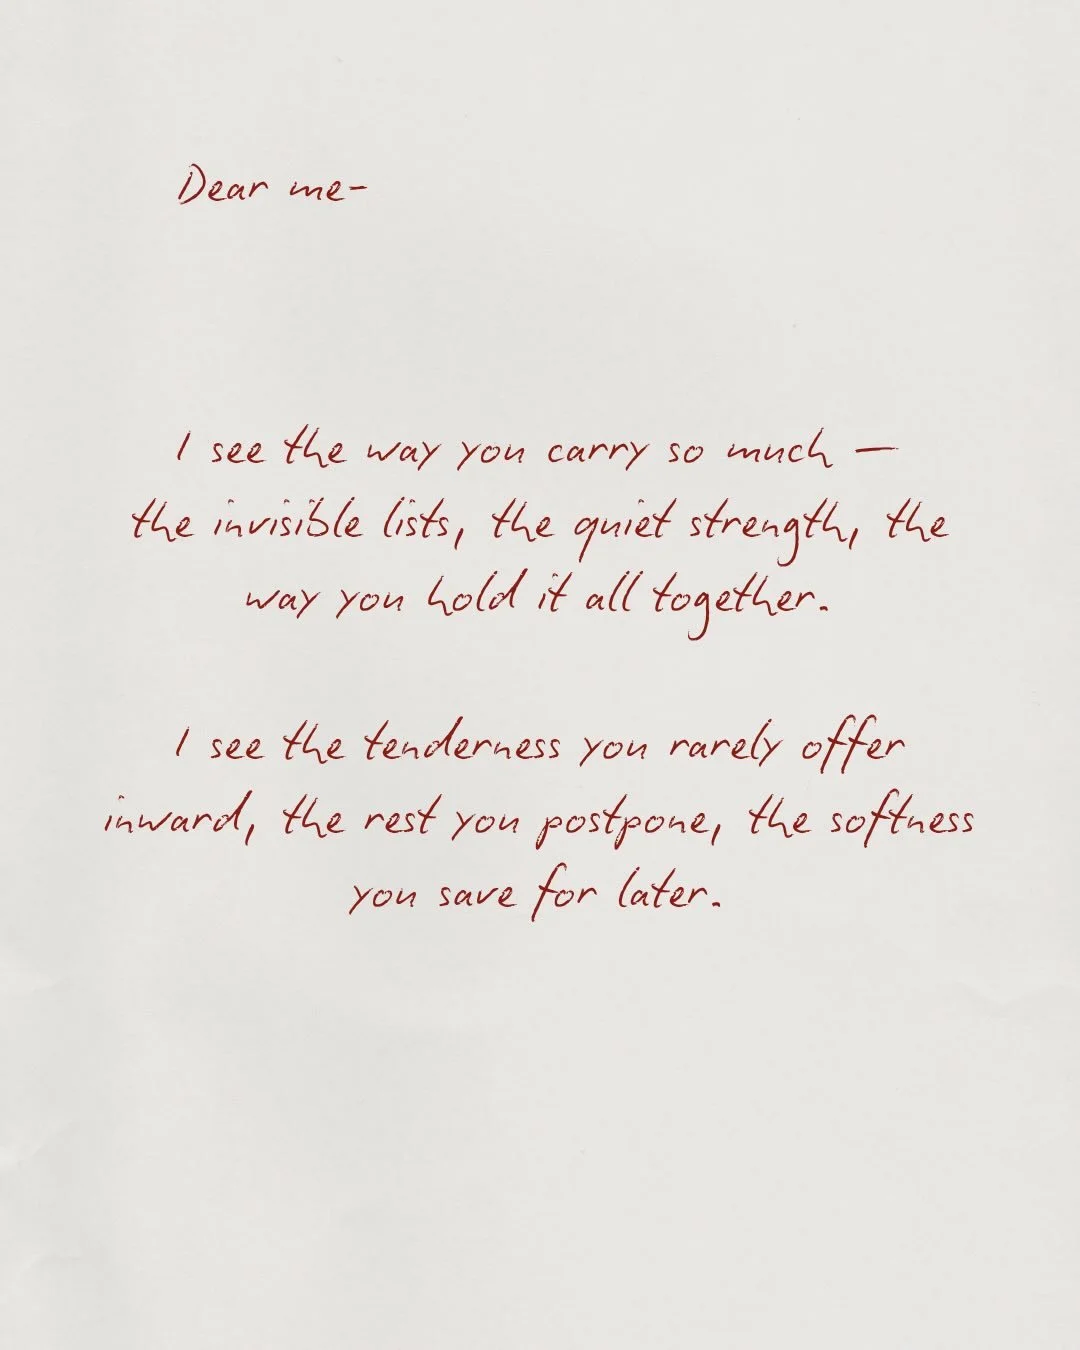 Dear me-
I see the way you carry so much —
the invisible lists, the quiet strength, the
way you hold it all together.
I see the tenderness you rarely offer
inward, the rest you postpone, the softness
you save for later.